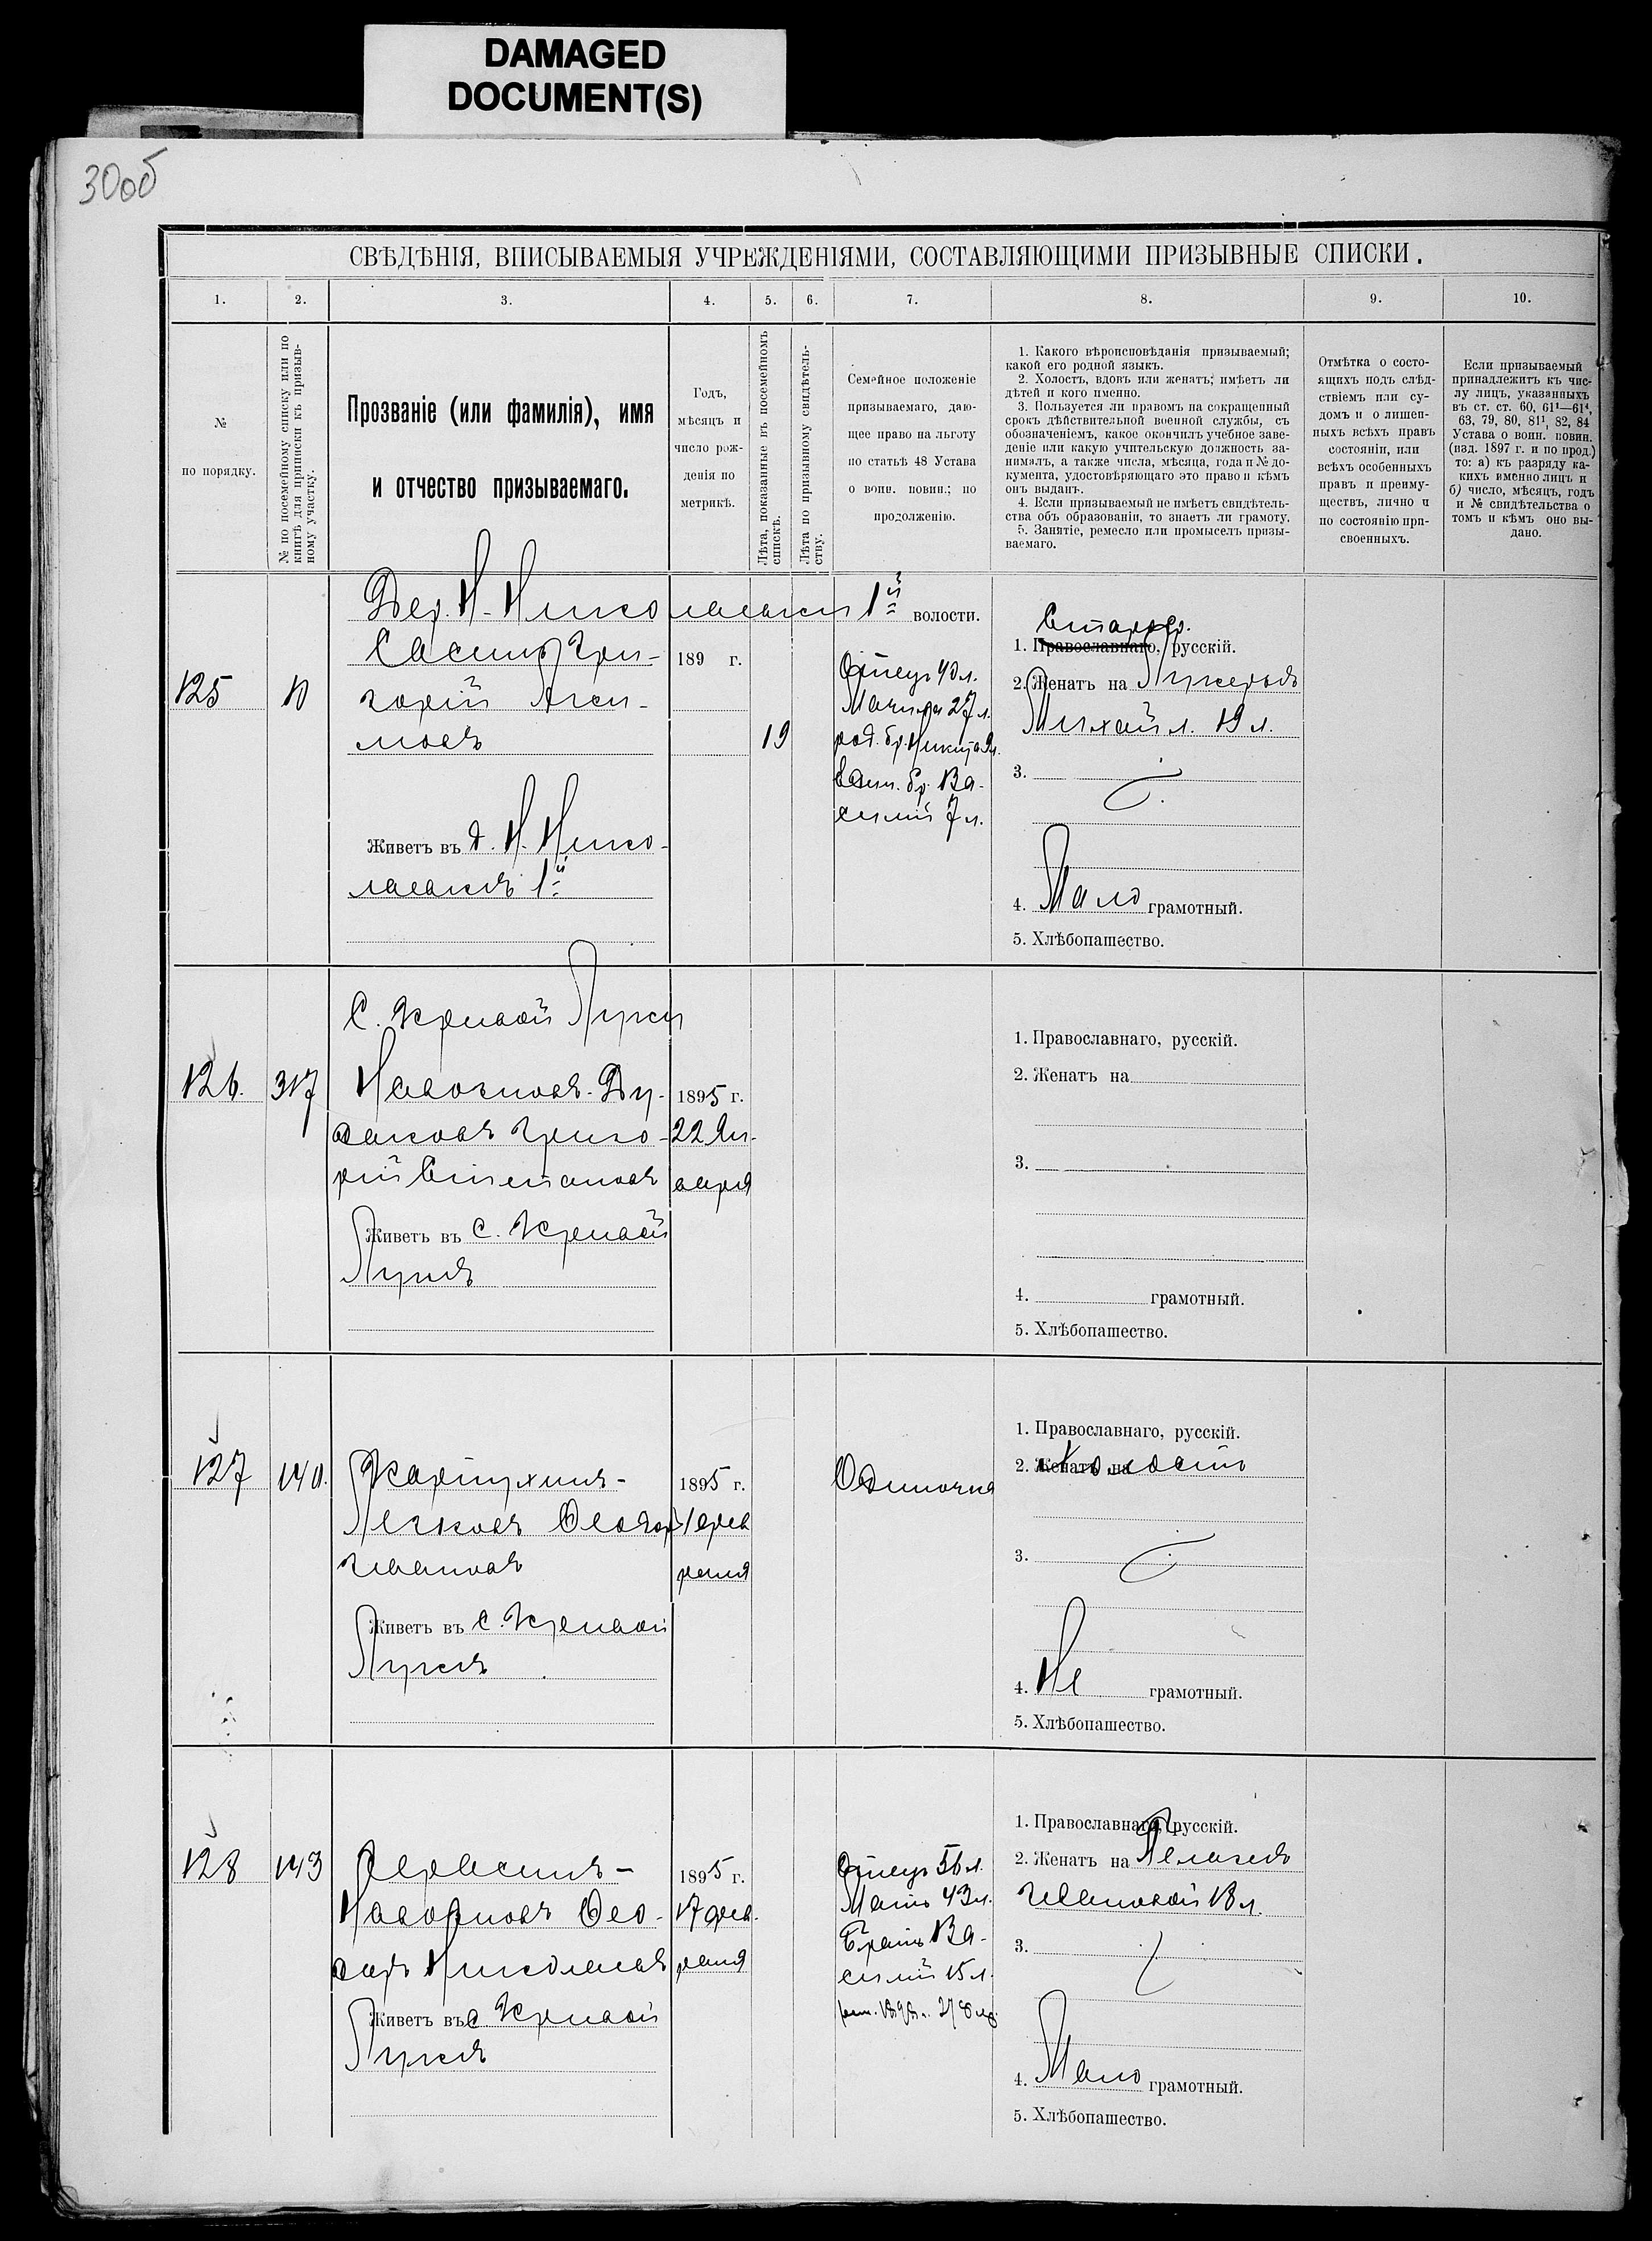 DAMAGED
DOCUMENT(S)
30об
СВѢДѢНІЯ, ВПИСЫВАЕМЫЯ УЧРЕЖДЕНІЯМИ, СОСТАВЛЯЮЩИМИ ПРИЗЫВНЫЕ СПИСКИ.
1. 2. 3. 4. 5. 6. 7. 8. 9. 10.
№
по порядку.
№ по посемейному списку или по
книгѣ для приписки къ призыв-
ному участку.
Прозваніе (или фамилія), имя
и отчество призываемаго.
Годъ,
мѣсяцъ и
число рож-
денія по
метрикѣ.
Лѣта, показанные въ посемейномъ
спискѣ.
Лѣта по призывному свидѣтель-
ству.
Семейное положеніе
призываемаго, даю-
щее право на льготу
по статьѣ 48 Устава
о воин. повин.; по
продолженію.
1. Какого вѣроисповѣданія призываемый;
какой его родной языкъ.
2. Холостъ, вдовъ или женатъ; имѣетъ ли
дѣтей и кого именно.
3. Пользуется ли правомъ на сокращенный
срокъ дѣйствительной военной службы, съ
обозначеніемъ, какое окончилъ учебное заве-
деніе или какую учительскую должность за-
нималъ, а также числа, мѣсяца, года и № до-
кумента, удостовѣряющаго это право и кѣмъ
онъ выданъ.
4. Если призываемый не имѣетъ свидѣтель-
ства объ образованіи, то знаетъ ли грамоту.
5. Занятіе, ремесло или промыселъ призы-
ваемаго.
Отмѣтка о состо-
ящихъ подъ слѣд-
ствіемъ или су-
домъ и о лишен-
ныхъ всѣхъ правъ
состоянія, или
всѣхъ особенныхъ
правъ и преиму-
ществъ, лично и
по состоянію при-
своенныхъ.
Если призываемый
принадлежитъ къ чис-
лу лицъ, указанныхъ
въ ст. ст. 60, 61¹—61⁴,
63, 79, 80, 81¹, 82, 84
Устава о воин. повин.
(изд. 1897 г. и по прод.)
то: а) къ разряду ка-
кихъ именно лицъ и
б) число, мѣсяцъ, годъ
и № свидѣтельства о
томъ и кѣмъ оно вы-
дано.
Дер. Н. Николаевки 1й волости.
125 10
Сасинъ Гри-
горій Аки-
мовъ
Живетъ въ д. Н. Нико-
лаевкѣ 1й
189 г.
19
Отецъ 40 л.
Мачиха 27 л.
род. бр. Никита 9 л.
Един. бр. Ва-
силій 7 л.
Старовѣр.
1. Православнаго, русскій.
2. Женатъ на Лукерьѣ
Михайл. 19 л.
3.
4. Мало грамотный.
5. Хлѣбопашество.
С. Кривой Луки
126. 317
Навозновъ-Ду-
даковъ Григо-
рій Степановъ
Живетъ въ С. Кривой
Лукѣ
1895 г.
22 Ян-
варя
1. Православнаго, русскій.
2. Женатъ на
3.
4. грамотный.
5. Хлѣбопашество.
127 140.
Картухинъ-
Легковъ Ѳеодоръ
Ивановъ
Живетъ въ С. Кривой
Лукѣ
1895 г.
1 фев
раля
Одиночка
1. Православнаго, русскій.
2. Женатъ на Холостъ
3.
4. Не грамотный.
5. Хлѣбопашество.
128 143
-
Ѳео-
доръ Николаевъ
Живетъ въ с Кривой
Лукѣ
1895 г.
17 фев.
раля
Отецъ 56 л.
Мать 43 л.
Братъ Ва-
силій 15 л.
1. Православнаго, русскій.
2. Женатъ на Пелагеѣ
Ивановой 18 л.
3.
4. Мало грамотный.
5. Хлѣбопашество.